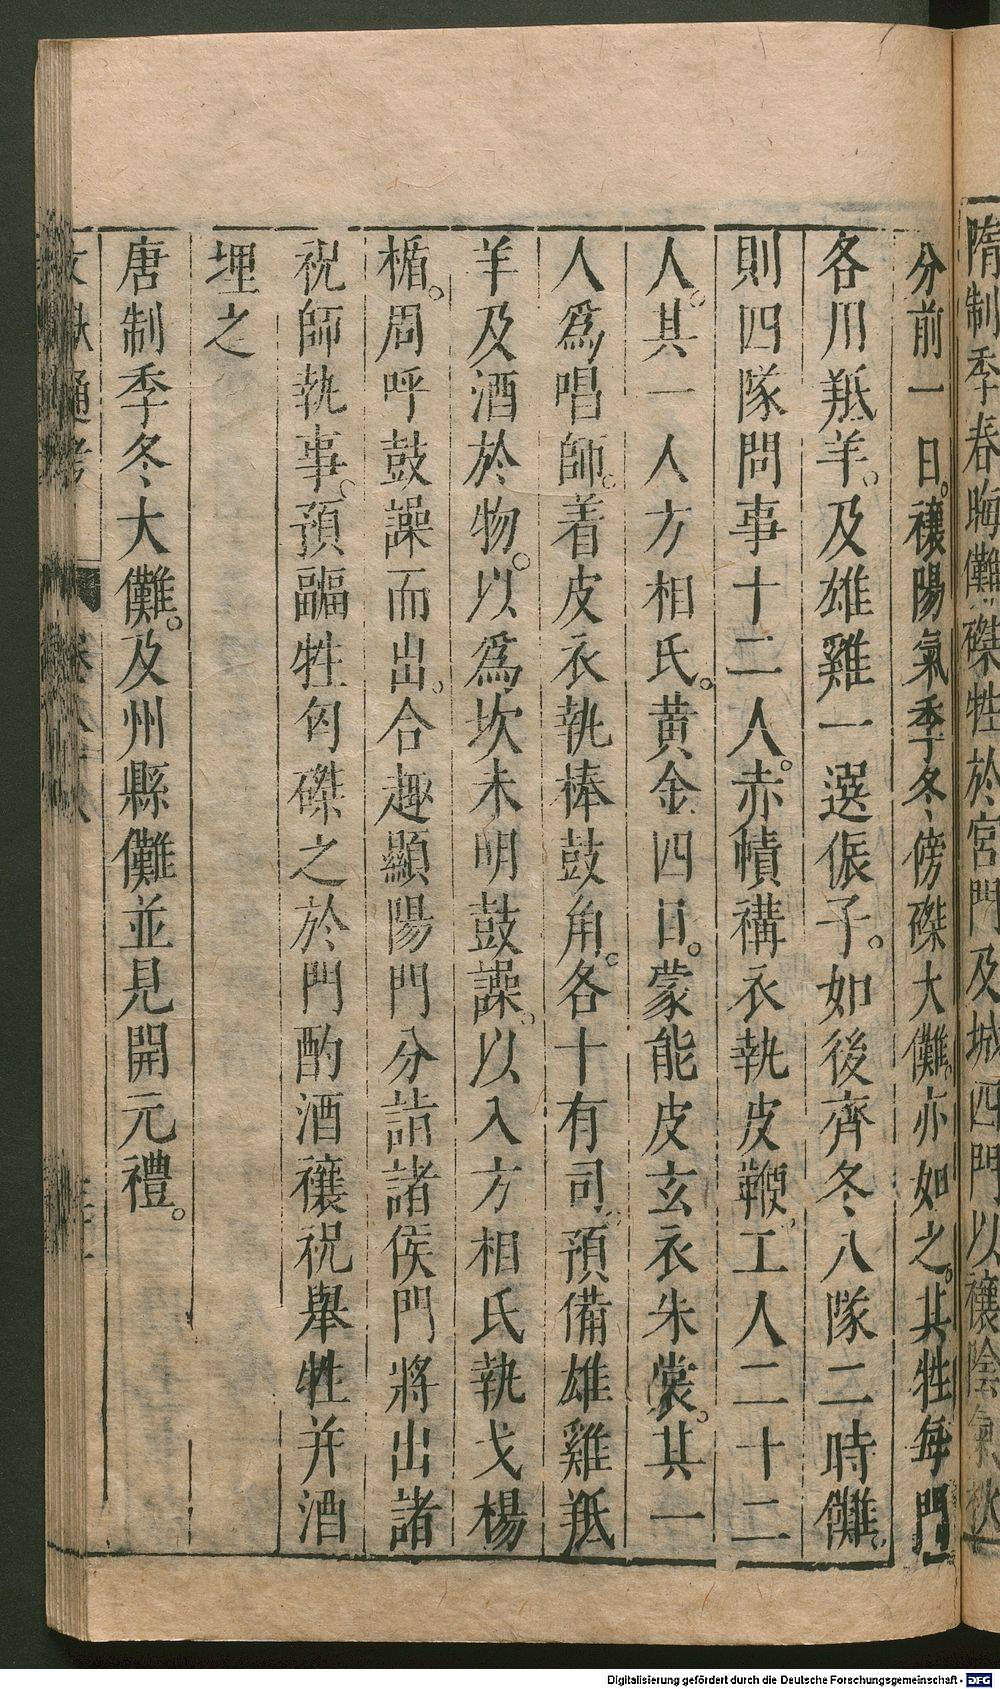 隋制季春晦儺磔牲於宮門及城四門以禳陰氣秋
分前一日。禳陽氣季冬傍磔大儺。亦如之。其牲每門
各用羝羊。及雄雞一選侲子。如後齊冬八隊二時儺。
則四隊問事十二人。赤幘褠衣執皮鞭。工人二十二
人。其一人方相氏。黃金四目。蒙能皮玄衣朱裳。其一
人爲唱師。着皮衣執棒鼓角。各十有司。預備雄雞羝
羊及酒於物。以爲坎未明鼓譟。以入方相氏執戈楊
楯。周呼鼓譟而出。合趣顯陽門分詣諸侯門將出諸
祝師執事。預疈牲匈磔之於門酌酒禳祝舉牲并酒
埋之
唐制季冬大儺。及州縣儺並見開元禮。
文獻通考 卷八十八